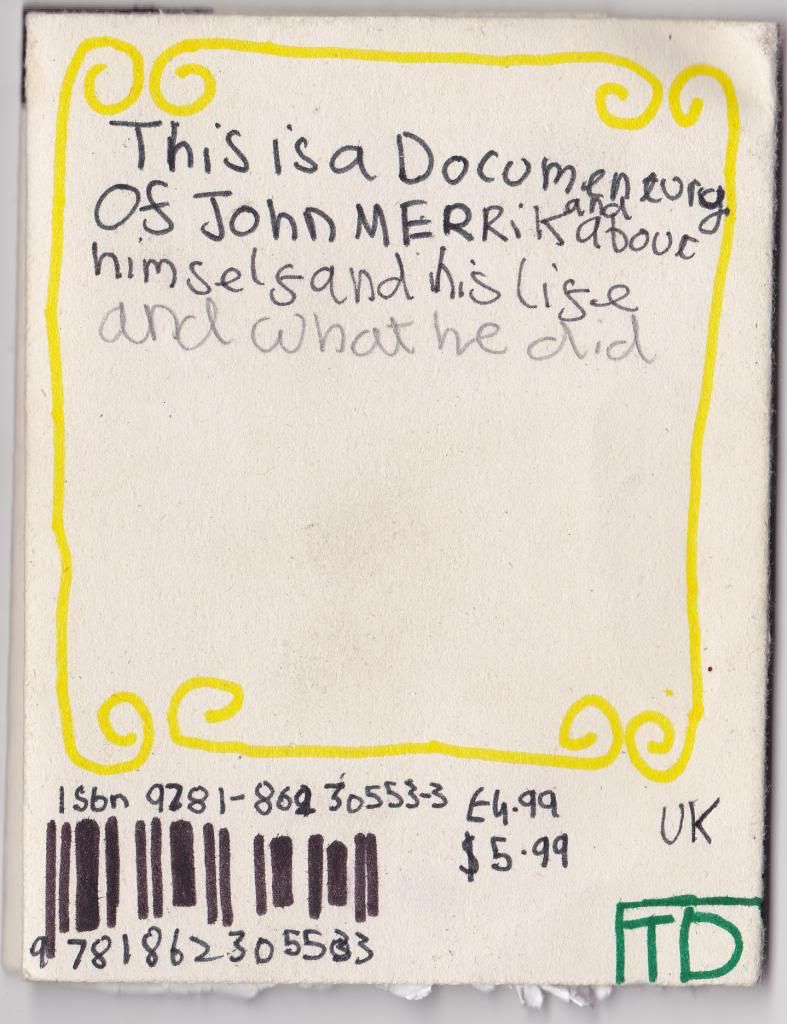 This is a Documentury
Of John MERRiK and about
himself and his life
and what he did
ISbn 9781-862 30553-3 £4.99
$5.99
UK
9 781862305533
TD